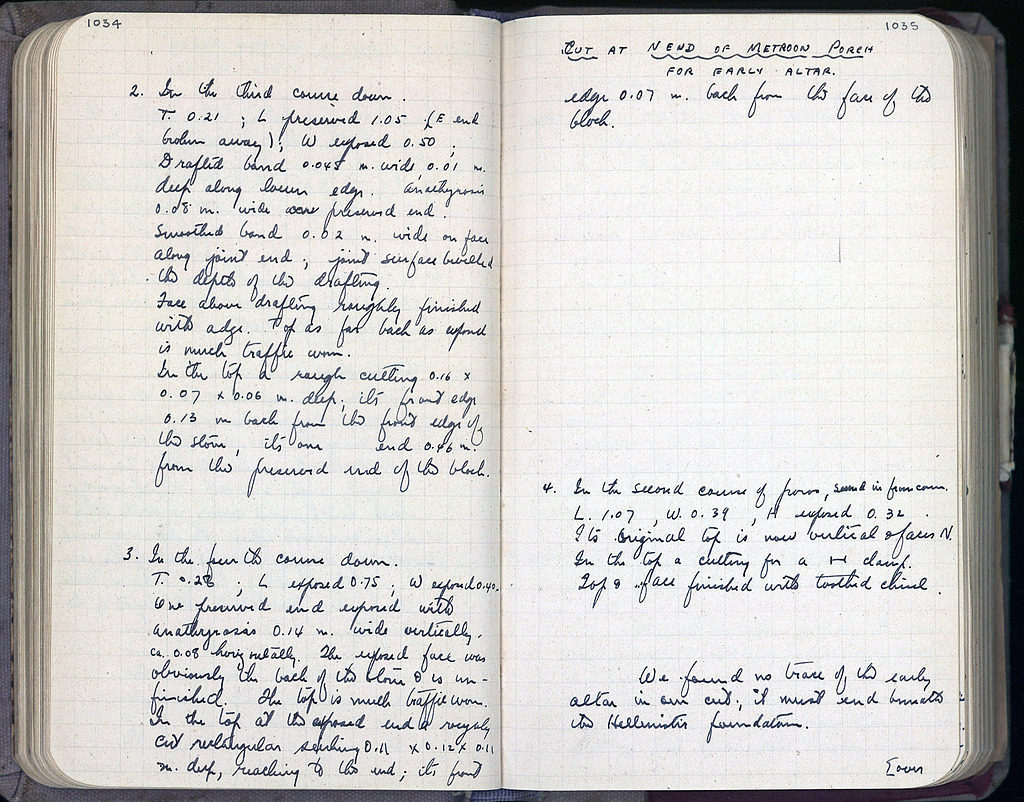 1034
2. In the third course down.
T. 0.21 ; L preserved 1.05 (E end
broken away); W exposed 0.50 ;
Drafted band 0.045 m. wide, 0.01 m.
deep along lower edge. Anathyrosis
0.08 m. wide preserved end.
Smoothed band 0.02 m. wide on face
along joint end ; joint surface bevelled
the depth of the drafting.
Face above drafting roughly finished
with adge. Top as far back as exposed
is much traffic worn.
In the top a rough cutting 0.16 x
0.07 x 0.06 m. deep; its front edge
0.13 m back from the front edge of
the stone, its one end 0.46 m.
from the preserved end of the block.
3. In the fourth course down.
T. 0.28 ; L exposed 0.75 ; W exposed 0.40.
One preserved end exposed with
anathyrosis 0.14 m. wide vertically,
ca. 0.08 horizontally. The exposed face was
obviously the back of the stone & is un-
finished. The top is much traffic worn.
In the top at the exposed end a roughly
cut rectangular sinking 0.11 x 0.12 x 0.11
m. deep, reaching to the end; its front
1035
CUT AT N END OF METROON PORCH
FOR EARLY ALTAR.
edge 0.07 m. back from the face of the
block.
4. In the second course of poros, second in from corn.
L. 1.07 , W. 0.39 , H exposed 0.32 .
Its original top is now vertical & faces N.
In the top a cutting for a H clamp.
Top & face finished with toothed chisel.
We found no trace of the early
altar in our cut; it must end beneath
the Hellenistic foundation.
[over